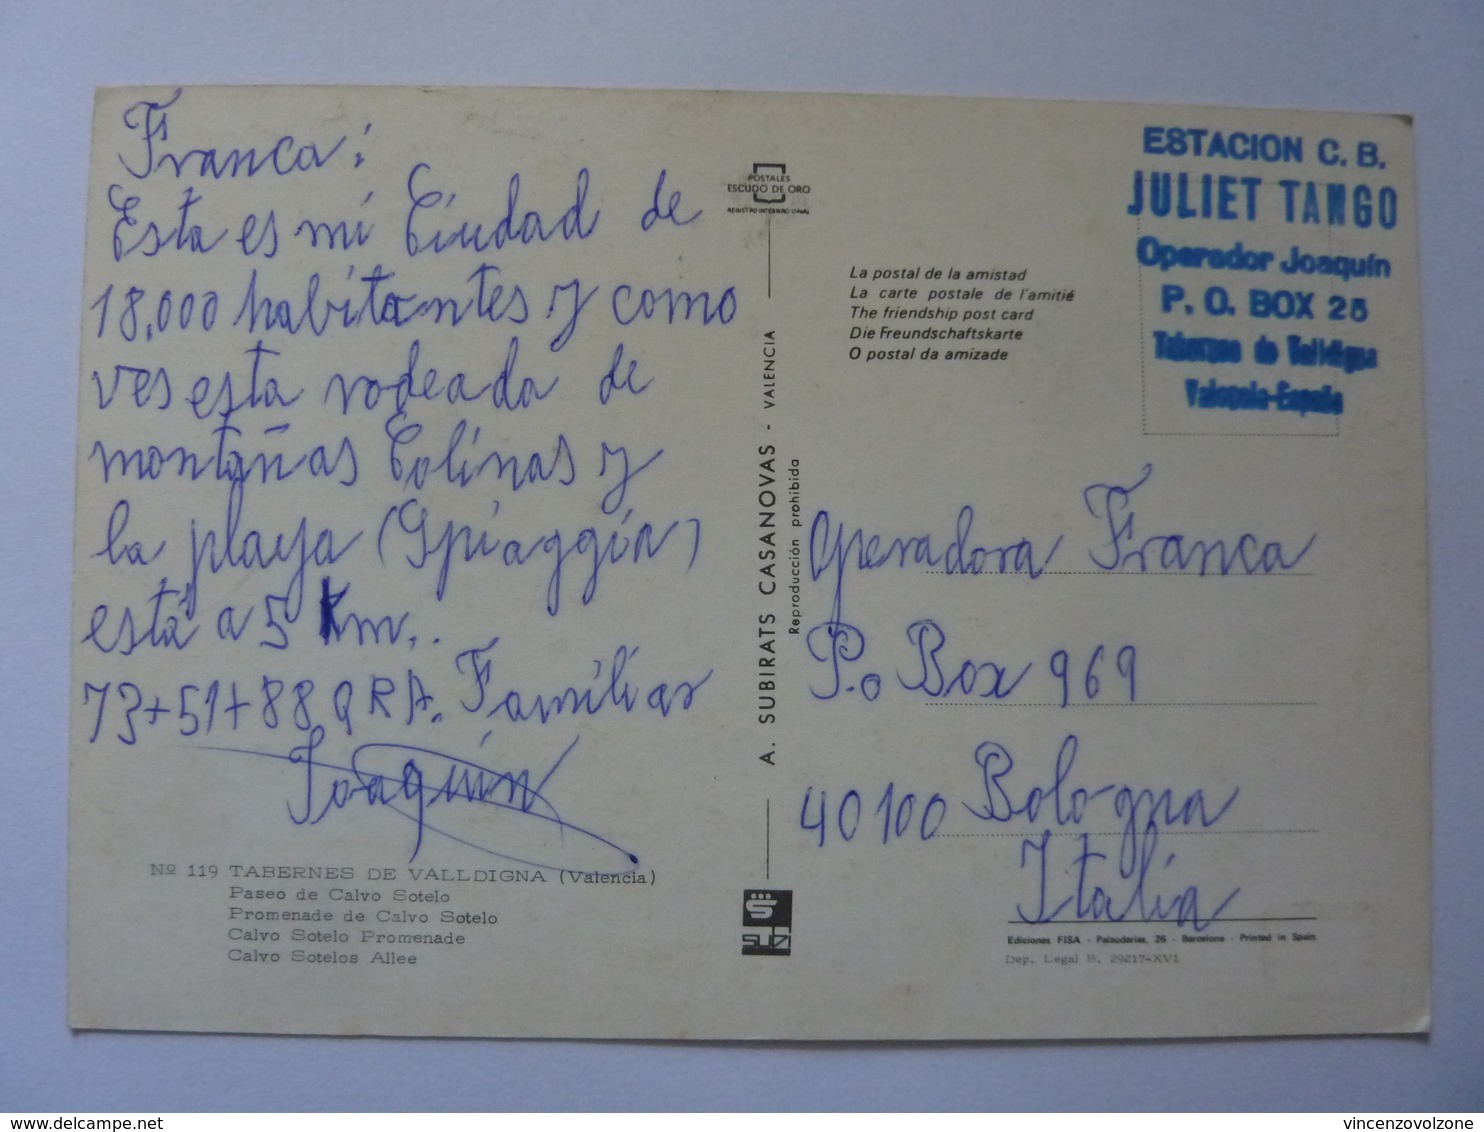 Franca:
Esta es mi Ciudad de
18,000 habitantes y como
ves esta rodeada de
montañas Colinas y
la playa (Spiaggia)
está a 5 Km..
73+51+88 QRA. Familiar
Joaquín
Nº 119 TABERNES DE VALLDIGNA (Valencia)
Paseo de Calvo Sotelo
Promenade de Calvo Sotelo
Calvo Sotelo Promenade
Calvo Sotelos Allee
POSTALES
ESCUDO DE ORO
REGISTRO INTERNACIONAL
A. SUBIRATS CASANOVAS - VALENCIA
Reproducción prohibida
SUBI
La postal de la amistad
La carte postale de l'amitié
The friendship post card
Die Freundschaftskarte
O postal da amizade
ESTACION C. B.
JULIET TANGO
Operador Joaquín
P. O. BOX 25
Tabernes de Valldigna
Valencia-España
Operadora Franca
P.o Box 969
40100 Bologna
Italia
Ediciones FISA - Palaudarias, 26 - Barcelona - Printed in Spain
Dep. Legal B. 29217-XVI
delcampe.net
vincenzovolzone